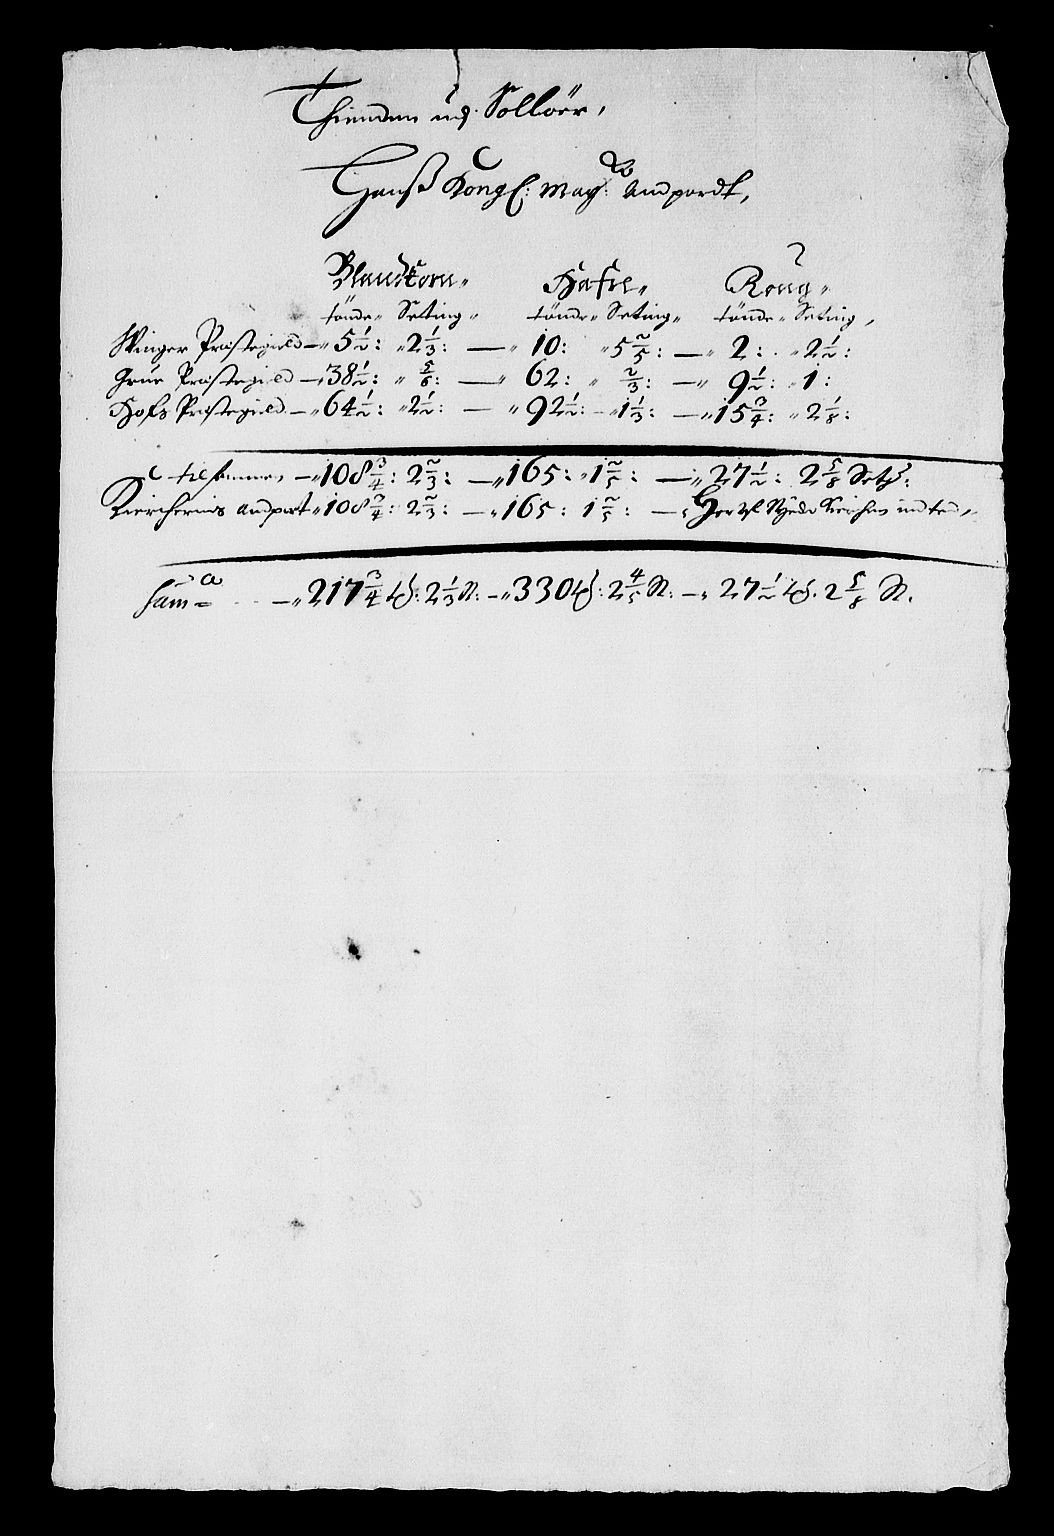 Thienden udj Sollöer,
Hanß Kongl: May: tz Andpardt,
Blandkorn " Hafre " Roug "
tönde " Seting " tönde " Seting " tönde " Seting,
Winger Præstegield — " 5 1/2: " 2 1/3: — " 10: " 5 2/5: — " 2: " 2 1/2:
Grue Præstegield — " 38 1/2: " 5/6: — " 62: " 2/3: — " 9 1/2: " 1:
Hofs Præstegield — " 64 1/2: " 2 1/2: — " 92 1/2: " 1 1/3: — " 15 3/4: " 2 1/8:
tilsammen — " 108 3/4: 2 2/3: — " 165: " 1 2/5: — " 27 1/2: 2 5/8 Set:
Kierchernis andpart " 108 3/4: 2 2/3: — " 165: 1 2/5: — " Kierchen indted,
Sum a — " 217 3/4 td: 2 1/3 St: — " 330 td: 2 4/5 St: — " 27 1/2 td. 2 5/8 St.